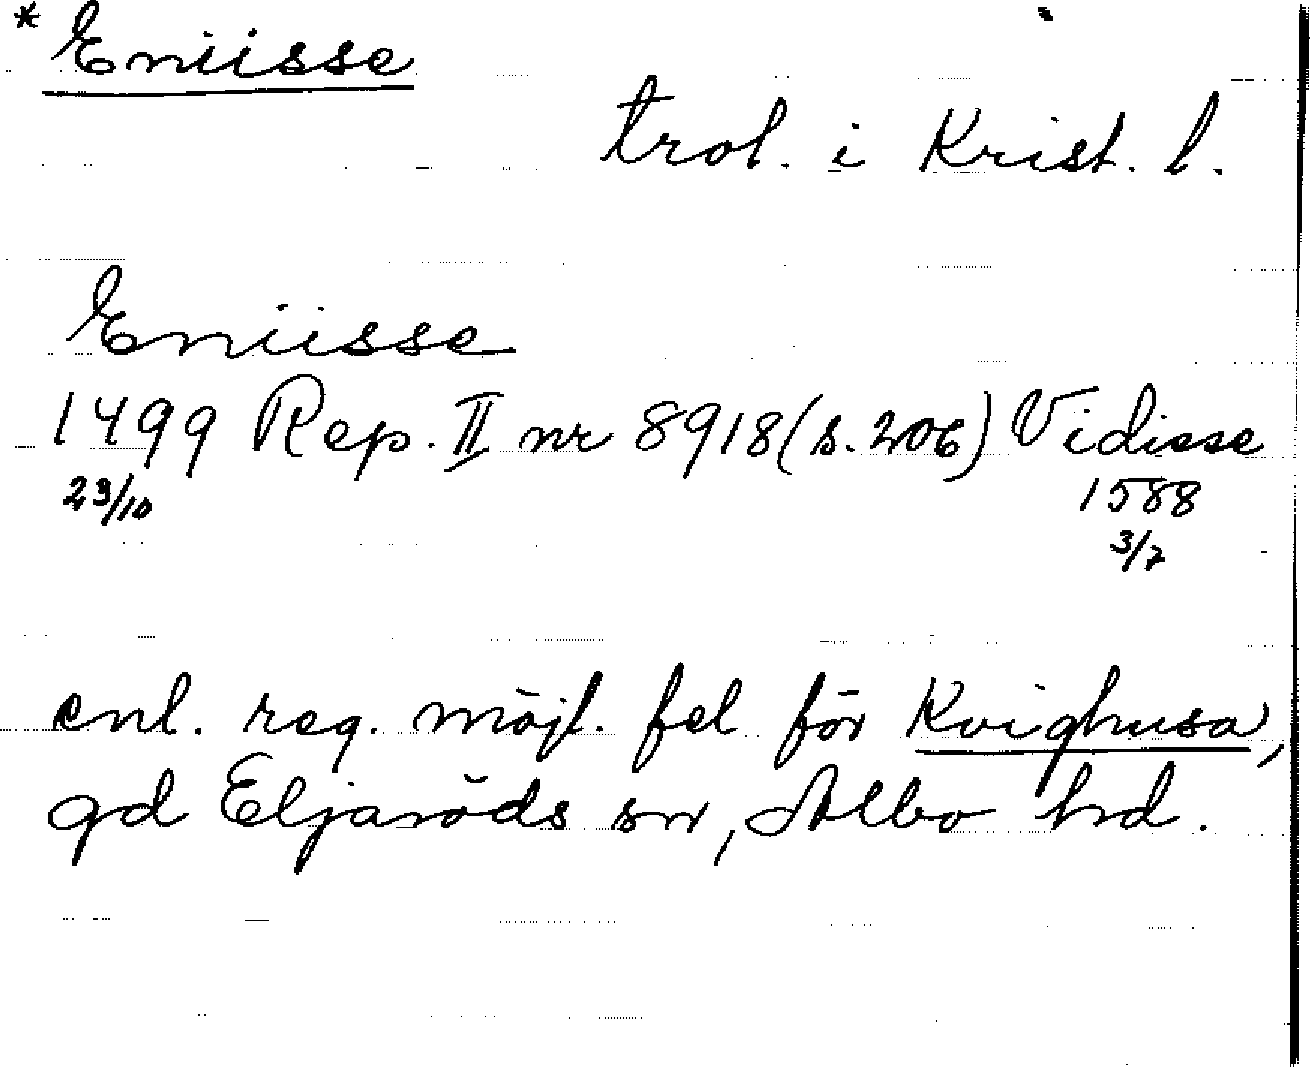 * Eniisse
trol. i Krist. l.
Eniisse
1499 Rep. II nr 8918 (s. 206) Vidisse
23/10 1588
3/7
enl. reg. möjl. fel för Kvighusa,
gd Eljaröds sn, Albo hd.